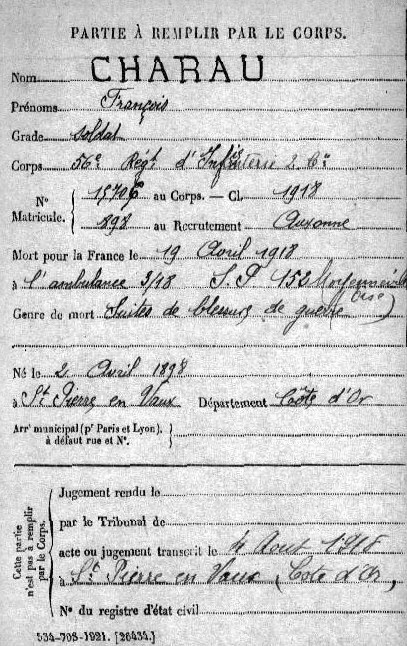 PARTIE À REMPLIR PAR LE CORPS.
Nom CHARAU
Prénoms François
Grade Soldat
Corps 56e Régt d'Infanterie 2 Cie
N° Matricule. { 15706 au Corps. — Cl. 1918
898 au Recrutement Auxonne
Mort pour la France le 19 Avril 1918
à l'ambulance 3/18 S.P. 152 Moyenneville
Genre de mort Suites de blessures de guerre (Oise)
Né le 2 Avril 1898
à St Pierre en Vaux Département Côte d'Or
Arrt municipal (pr Paris et Lyon), à défaut rue et N°. }
Cette partie n'est pas à remplir par le Corps.
Jugement rendu le
par le Tribunal de
acte ou jugement transcrit le 4 Aout 1918
à St Pierre en Vaux (Cote d'Or)
N° du registre d'état civil
534-708-1921. [26434.]